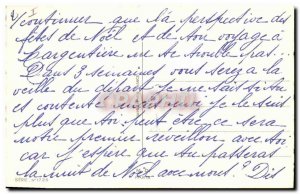 continuer que la perspective des
fêtes de Noël et de ton voyage à
l'argentière ne te trouble pas...
Dans 3 semaines vous serez à la
veille du départ je ne sais si tu
es contente mais moi je le suis
plus que toi peut être ce sera
notre premier réveillon avec toi
car j'espère que tu passeras
la nuit de Noël avec nous? Dis